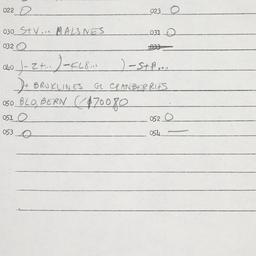 022 O 023 O
030 S+V... MALSNES 031 O
032 O 033
040 )-Z+...)-CL8... )-S+A...
)+ BRUKLINES GL CRANBERRIES
050 BLO, BERN (/$70080
051 O 052 O
053 O 054 —